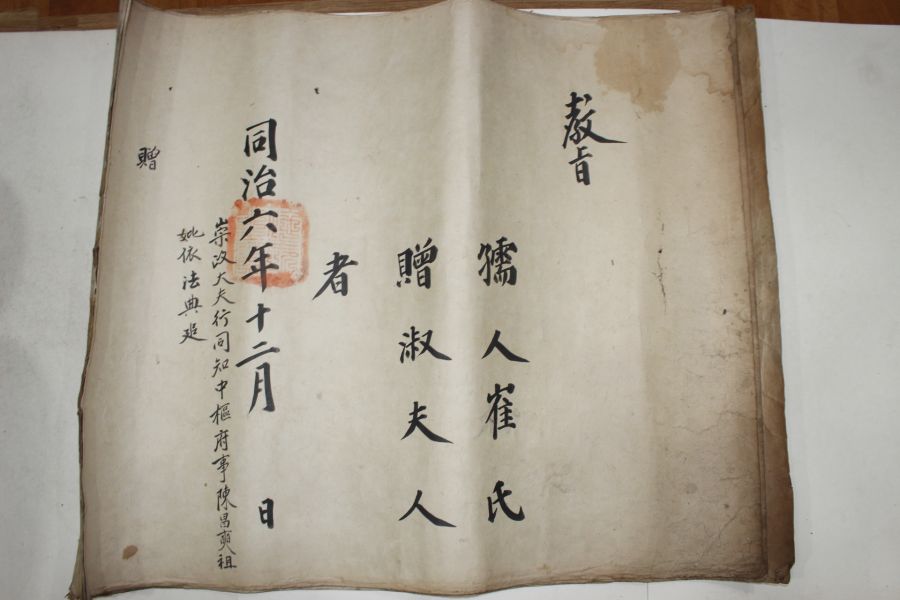 敎旨
孺人崔氏
贈淑夫人
者
同治六年十二月 日
崇政大夫行同知中樞府事陳昌奭祖
妣依法典追
贈